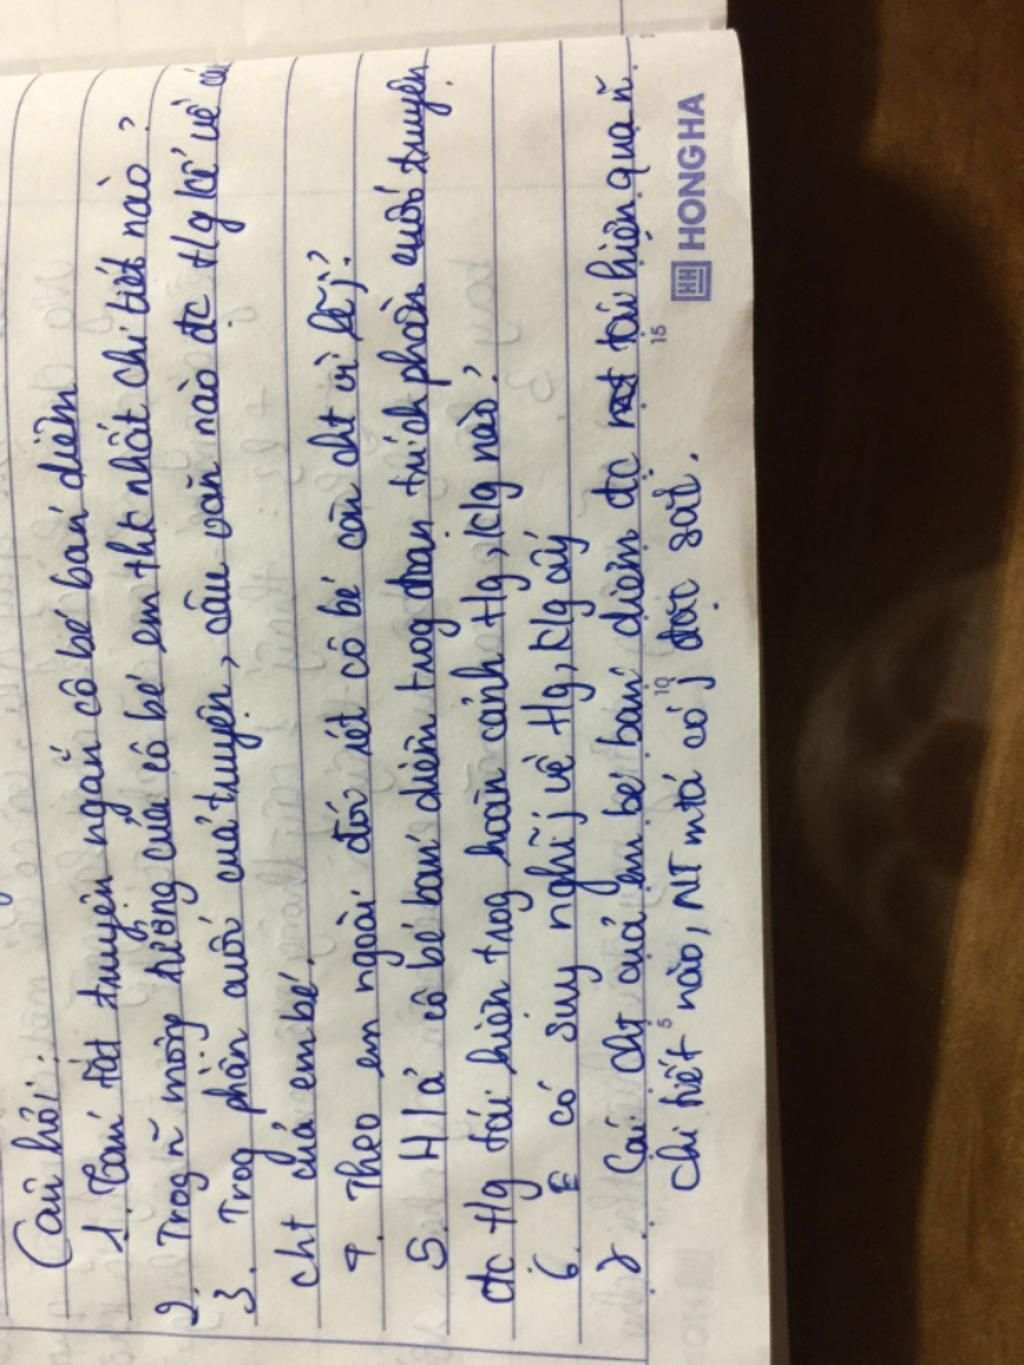 Câu hỏi:
1. Tóm tắt truyện ngắn cô bé bán diêm
2. Trog ~n mộng tưởng của cô bé em thk nhất chi tiết nào?
3. Trog phần cuối của truyện, câu văn nào đc Hg kể về cái
cht của em bé.
4. Theo em ngoài đói rét cô bé còn cht vì lẽ j?
5. H/ả cô bé bán diêm trog đoạn trích phần cuối truyện
đc Hg tái hiện trog hoàn cảnh Hg, Klg nào?
6. E có suy nghĩ j về Hg, Klg ấy
7. Cái cht của em bé bán diêm đc tái hiện qua ~n
chi tiết nào, NT mtả có j đặc sắc.
HH HONG HA
5 10 15